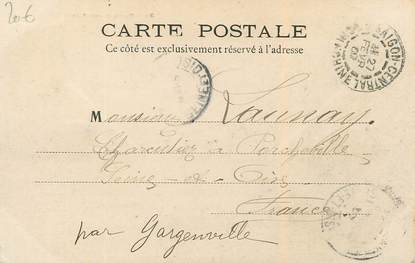 206
CARTE POSTALE
Ce côté est exclusivement réservé à l'adresse
SAIGON-CENTRAL
27
Monsieur Launay
Charcutier à Porcheville
Seine-et-Oise
France
par Gargenville